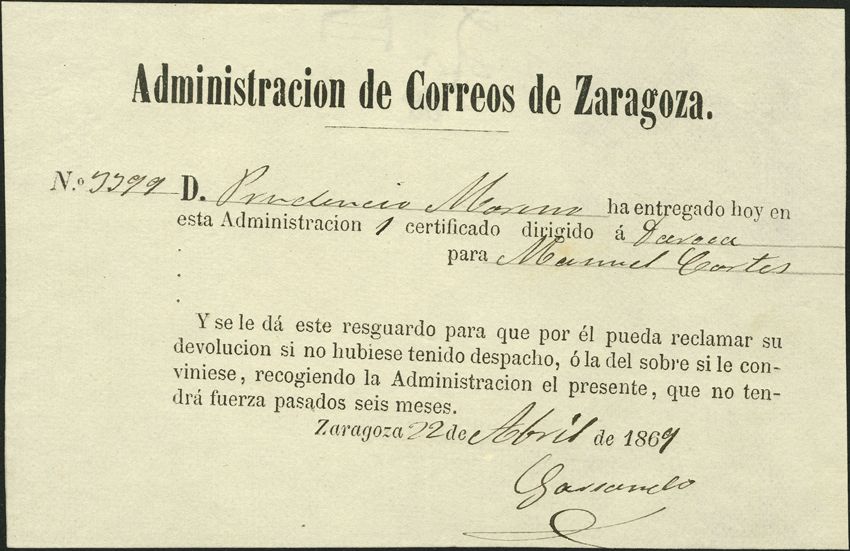 Administracion de Correos de Zaragoza.
N.º 3399 D. Prudencio Moreno ha entregado hoy en
esta Administracion 1 certificado dirigido á Daroca
para Manuel Cortes
Y se le dá este resguardo para que por él pueda reclamar su
devolucion si no hubiese tenido despacho, ó la del sobre si le con-
viniese, recogiendo la Administracion el presente, que no ten-
drá fuerza pasados seis meses.
Zaragoza 22 de Abril de 1869